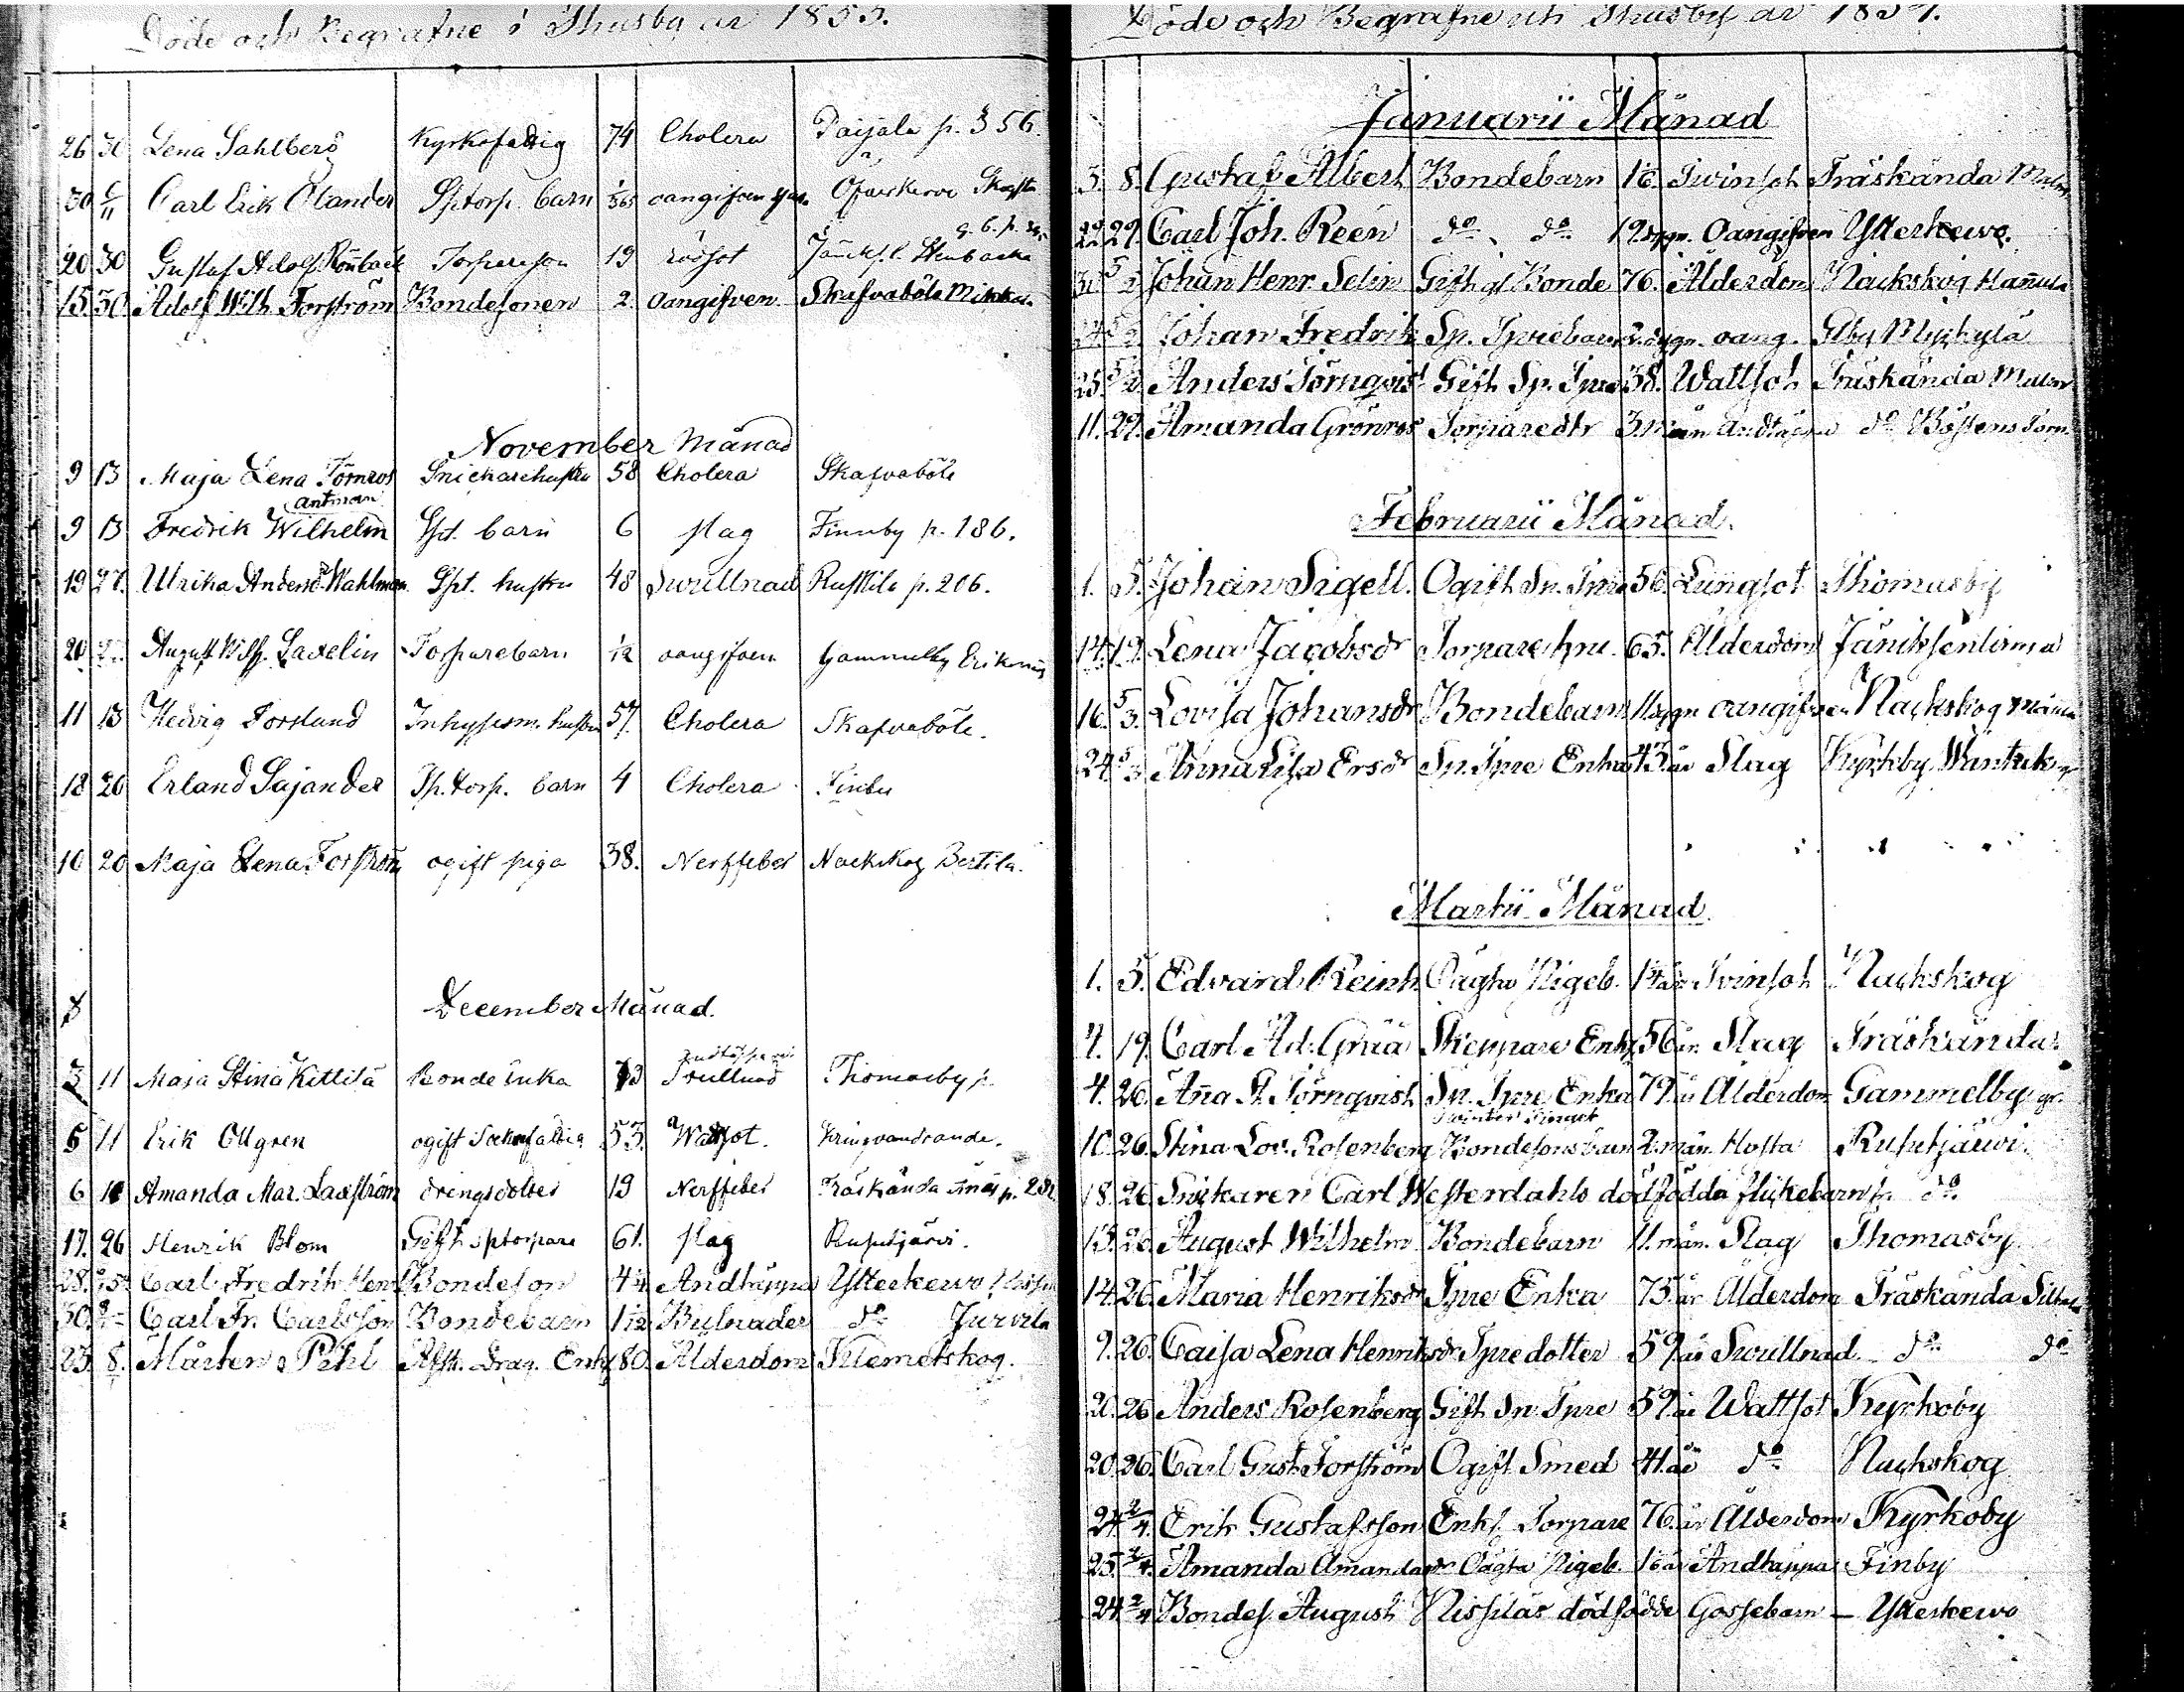 Döde och Begrafne i Thusby år 1853.
26 30 Lena Sahlberg Kyrkofattig 74 Cholera Paijala p. 356.
30 6/11 Carl Erik Elander Sptorp. barn 1/365 oangifven sjuk. Öfverkervo Skogster
g. b. p.
20 30 Gustaf Adolf Rönnback Torpareson 19 rödsot Jänicksl. Stenbacka
15. 30. Adolf Wilh Forström Bondesonen 2. Oangifven Skafvaböle Mikkas.
November Månad
9 13 Maja Lena Törnros Snickarehustru 58 Cholera Skafvaböle
Antman
9 13 Fredrik Wilhelm Spt. barn 6 slag Finnby p. 186.
19 27. Ulrika Andersdr Wahlman Spt. hustru 48 Swullnad Rusttila p. 206.
20 27 August Wilh. Laxelin Torparebarn 1/12 oangifven Gammelby Eriksnäs
11 13 Hedvig Forslund Inhysesm. hustru 57. Cholera Skafvaböle.
18 20 Erland Sajander Sp. torp. barn 4 Cholera Finby
10 20 Maja Lena Forström ogift piga 38. Nerffeber Nackskog Bertila.
December Månad.
3 11 Maja Stina Kittilä Bonde Enka 73 Swullnad Thomasby p.
5 11 Erik Ollgren ogift Sockenfattig 53. Wattsot. Kringvandrande.
6 18 Amanda Mar. Laxström drengsdotter 19 Nerffeber Träskända
17. 26 Henrik Blom Gift sptorpare 61. slag Ruhutjärvi.
28. 15 Carl Fredrik Henr. Bondeson 4 1/4 Andtäppa Ytterkervo
30. 8 Carl Fr. Carlsson Bondebarn 1 1/12 Bulnader do Jurvala
23. 8. Mårten Pihl Afsk. Drag. Enkl. 80. Ålderdom Klemetskog.
Döde och Begrafne uti Thusby år 1854.
Januarii Månad
3. 8. Gustaf Albert Bondebarn 1/6. Tvinsot Träskända Malm
22 29. Carl Joh. Reen do. do. 12 dygn. Oangifven Ytterkervo.
31 5/2 Johan Henr. Selin Gift gl. Bonde 76. Ålderdom Nackskog Hannula
24 5/2 Johan Fredrik Sp. Tprebarn 2. dygn. oang. Gllby Myrkylä
25. 5/2 Anders Törnqvist Gift Sp. Tpre 38. Wattsot Träskända Malm
11. 29. Amanda Grönroos Torparedtr 3. mån Andtäppa do Böstens Torn
Februarii Månad.
1. 5. Johan Sigell. Ogift Sp. Tpre 56. Lungsot Thomasby
14. 19. Lena Jacobsdr Torpare hru. 65. Ålderdom Jäniksenlinna
16. 5/3. Lovisa Johansdr Bondebarn 11 dygn oangifven Nackskog
24. 5/3. Anna Lisa Ersdr Sp. Tpre Enka 43. år Slag Kyrkby Wantuksg
Martii Månad.
1. 5. Edvard Reinh. Oägta Pigeb. 1 1/4 år Tvinsot Nackskog
7. 19. Carl Ad. Gråå Skeppare Enkl. 56 år. Slag Träskända
4. 26. Anna St. Törnqvist Sp. Tpre Enka 79. år Ålderdom Gammelby gr.
10. 26. Stina Lov. Rosenberg Bondesonsbarn 2. mån. Hosta Ruhetjärvi.
18. 26 Snikaren Carl Westerdahls dödfödda flickebarn fr. do.
13. 26. August Wilhelm Bondebarn 11. mån. Slag Thomasby.
14. 26. Maria Henriksdr Tpre Enka 75. år Ålderdom Träskända Silta
9. 26. Caisa Lena Henriksdr Tpre dotter 59. år Swullnad. do do
20. 26 Anders Rosenberg Gift Sp. Tpre 59. år Wattsot Kyrkoby
20. 26. Carl Gust. Forström Ogift Smed 41. år do Nackskog
24. 2/4. Erik Gustafsson Enkl. Torpare 76. år Ålderdom Kyrkoby
25. 2/4. Amanda Amandasdr Oägta Pigeb. 1 6 år Andtäppa Finby
24. 2/4 Bondes. August Nissiläs dödfödde Gossebarn — Ytterkervo